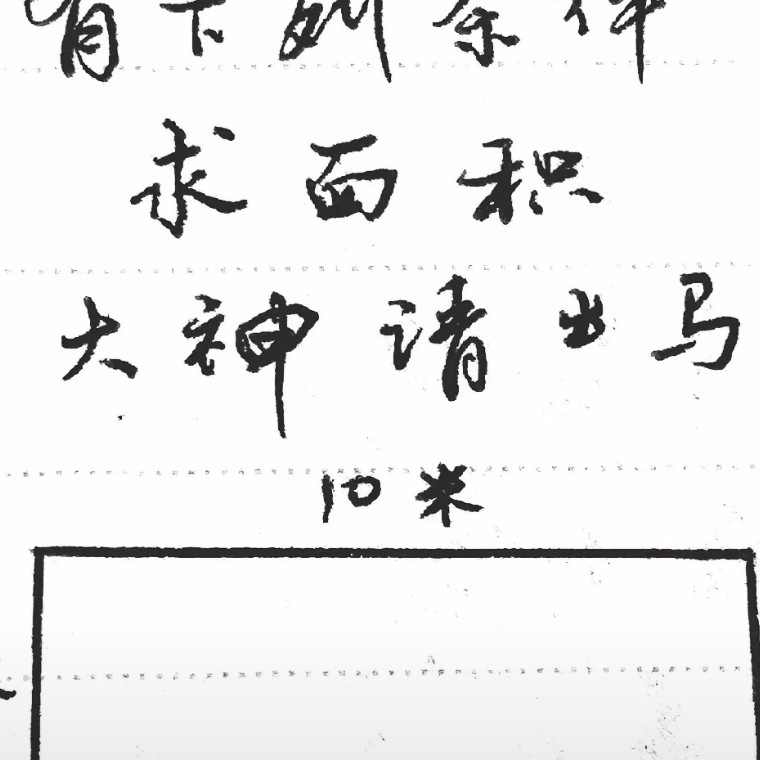 有下列条件
求面积
大神请出马
10米